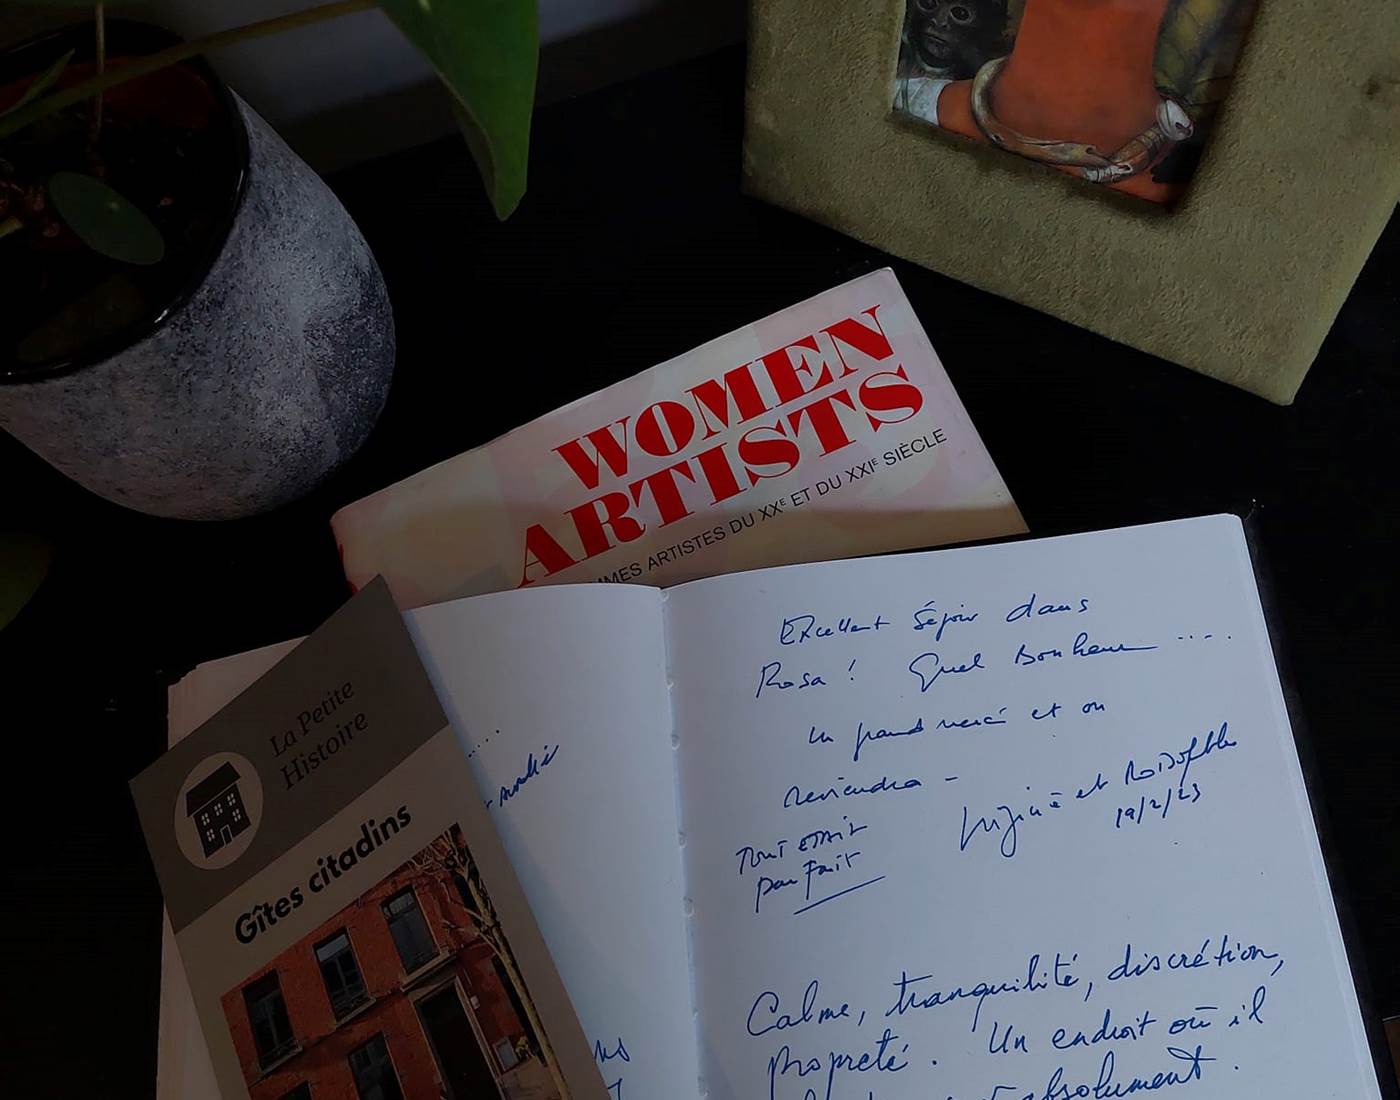 WOMEN
ARTISTS
MMES ARTISTES DU XXᴱ ET DU XXIᴱ SIÈCLE
La Petite
Histoire
Gîtes citadins
Excellent séjour dans
Rosa ! Quel Bonheur ....
un grand merci et on
reviendra -
et Rodolphe
19/2/23
Tout etait
parfait
Calme, tranquilité, discrétion,
propreté. Un endroit où il
absolument.